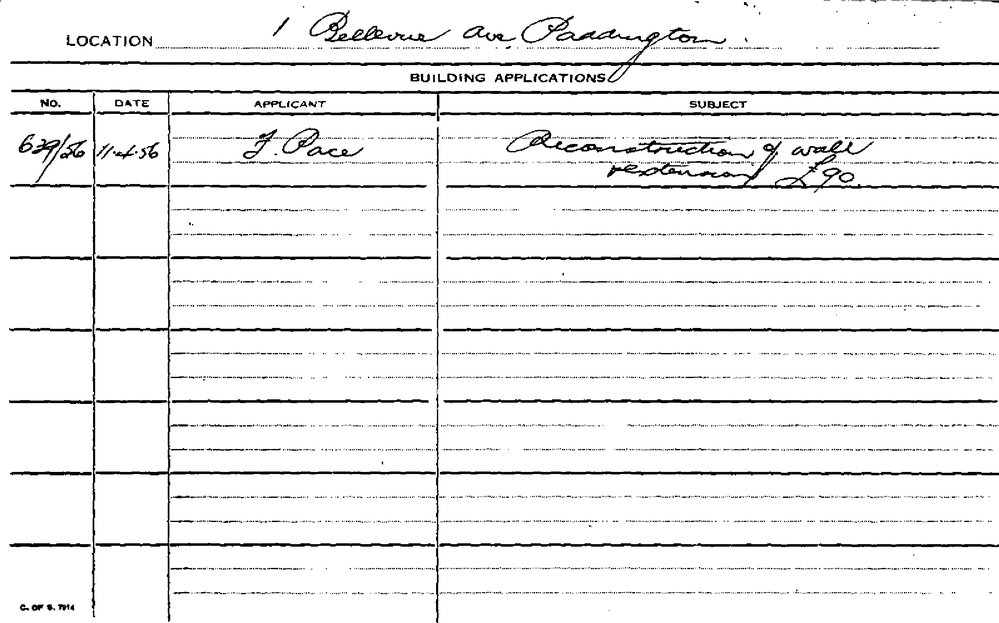 LOCATION 1 Bellevue Ave, Paddington.
BUILDING APPLICATIONS
NO. DATE APPLICANT SUBJECT
639/56 11.4.56 F. Pace Reconstruction of wall
extension £90.
C. OF S. 7914